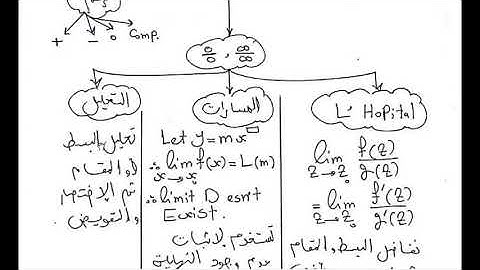 + - 0 Comp.
0/0 , ∞/∞
التحليل
تحليل البسط
او المقام
ثم الإختصار
والتعويض
المسارات
Let y = mx
∴ lim f(x) = L(m)
x→x₀
∴ limit D esn't
Exist.
تستخدم لاثبات
عدم وجود النهاية
L' Hopital
lim f(z)/g(z)
z→z₀
= lim f'(z)/g'(z)
z→z₀
نفاضل البسط والمقام